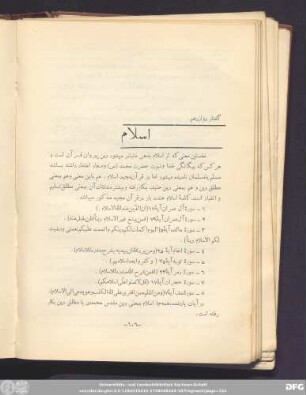 گفتار دوازدهم
اسلام
نخستین معنی که از اسلام بذهن متبادر میشود دین پیروان قرآن است و
هر کس که بیگانگی خدا و نبوت حضرت محمد (ص) و معاد اعتقاد داشته باشد
مسلم یا مسلمان نامیده میشود اما در قرآن مجید اسلام ، هم باین معنی و هم بمعنی
مطلق دین و هم بمعنی دین حنیف بکار رفته و بیشتر مشتقات آن بمعنی مطلق تسلیم
و انقیاد است. کلمهٔ اسلام هشت بار در قرآن مجید مذکور میباشد :
۱ - سورهٔ آل عمران آیهٔ (ان الدین عند الله الاسلام)
۲ - سورهٔ آل عمران آیهٔ (ومن یبتغ غیر الاسلام دیناً فلن یقبل منه)
۳ - سورهٔ مائده آیهٔ (الیوم اکملت لکم دینکم واتممت علیکم نعمتی و رضیت
لکم الاسلام دیناً)
۴ - سورهٔ انعام آیهٔ (فمن یرد الله ان یهدیه یشرح صدره للاسلام)
۵ - سورهٔ توبه آیهٔ ( وکفروا بعد اسلامهم )
۶ - سورهٔ زمر آیهٔ (افمن شرح الله صدره للاسلام)
۷ - سورهٔ حجرات آیهٔ (قل لاتمنوا علی اسلامکم)
۸ - سورهٔ صف آیهٔ (ومن اظلم ممن افتری علی الله الکذب وهو یدعی الی الاسلام)
در آیات اسلام بمعنی دین مقدس محمدی یا مطلق دین بکار
رفته است.
Universitäts- und Landesbibliothek Sachsen-Anhalt
DFG